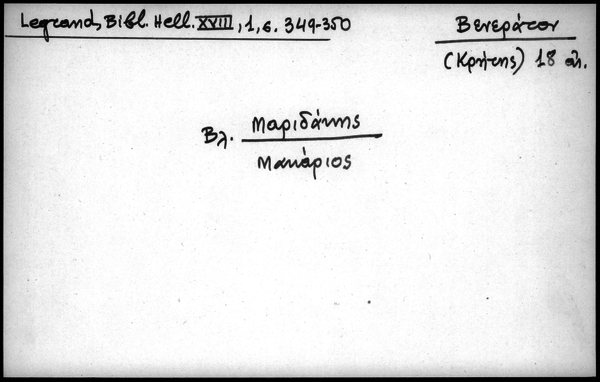 Legrand, Bibl. Hell. XVIII, 1, σ. 349-350
Βενεράτον
(Κρήτης) 18 αι.
Βλ. Μαριδάκης
Μακάριος